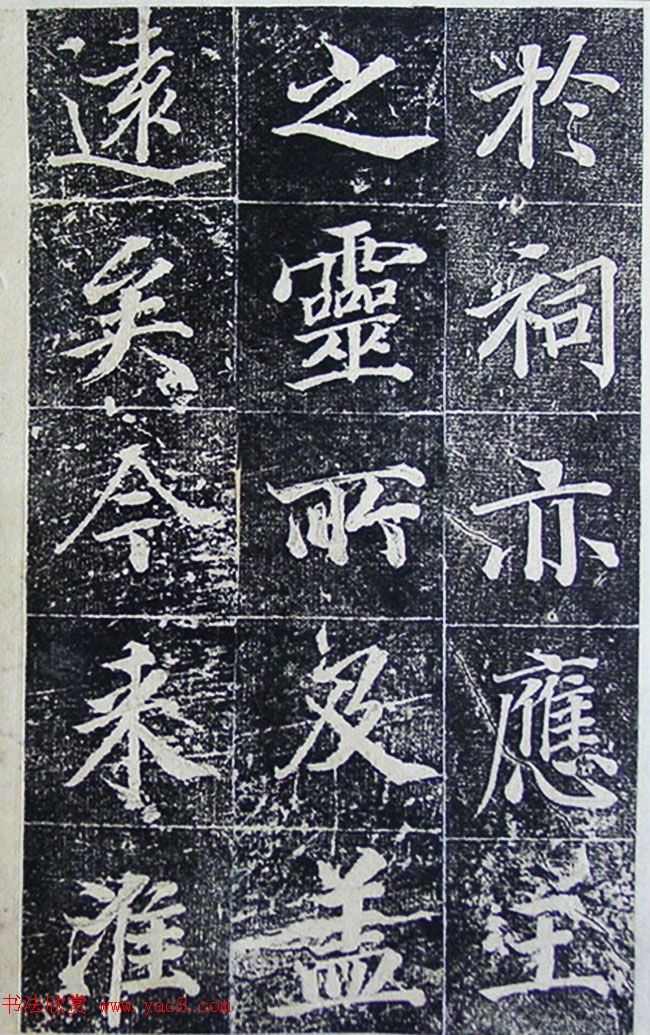 於祠亦應
之靈所及蓋
遠矣今来淮
书法欣赏 www.yac8.com